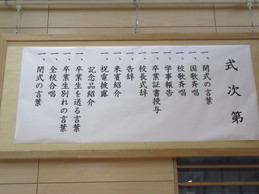 式次第
一、開式の言葉
一、国歌斉唱
一、校歌斉唱
一、学事報告
一、卒業証書授与
一、校長式辞
一、告辞
一、来賓紹介
一、祝電披露
一、記念品紹介
一、卒業生を送る言葉
一、卒業生別れの言葉
一、全校合唱
一、閉式の言葉